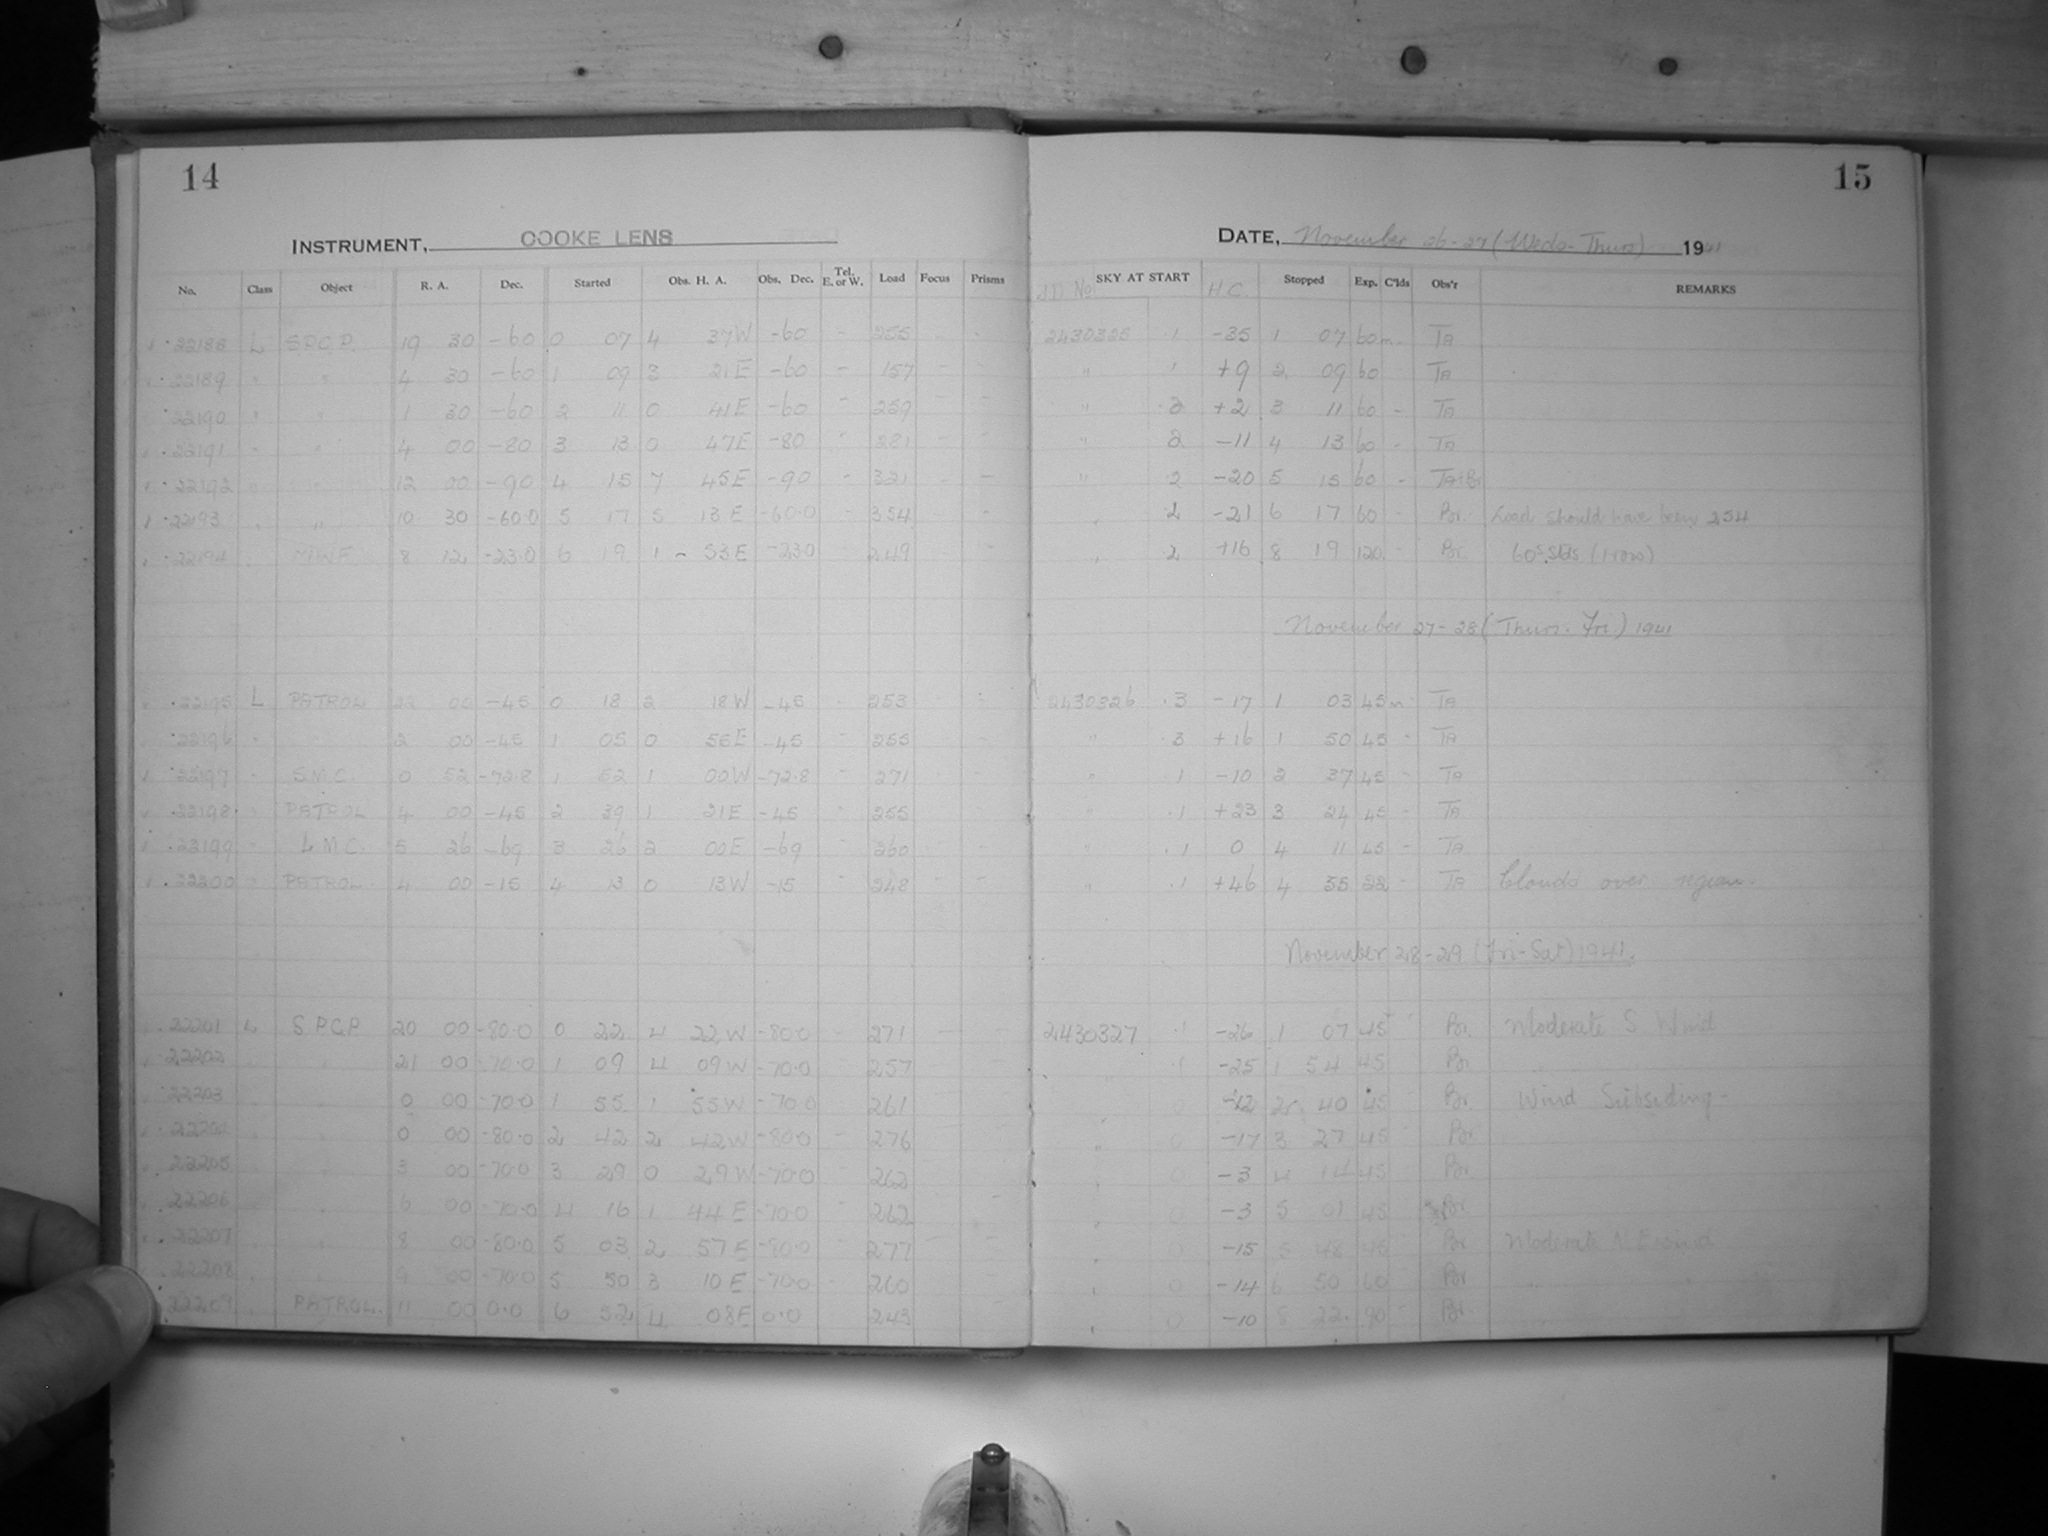 14
15
INSTRUMENT, COOKE LENS
DATE, November 26-27 (Weds-Thurs) 1941
No. Class Object R. A. Dec. Started Obs. H. A. Obs. Dec. Tel. E. or W. Load Focus Prisms J.D. No. SKY AT START H.C. Stopped Exp. C'lds Obs'r REMARKS
22188 L S.P.C.P. 19 30 -60 0 07 4 37W -60 - 255 2430325 1 -35 1 07 60m - TA
22189 " " 4 30 -60 1 09 3 21E -60 - 157 - - " 1 +9 2 09 60 TA
22190 " " 1 30 -60 2 11 0 41E -60 - 259 - - " 2 +2 3 11 60 - TA
22191 " " 4 00 -80 3 13 0 47E -80 - 281 - - " 2 -11 4 13 60 - TA
22192 12 00 -90 4 15 7 45E -90 - 321 - - " 2 -20 5 15 60 - TA+Br
22193 " " 10 30 -60.0 5 17 5 13E -60.0 - 354 - - " 2 -21 6 17 60 - Br. Load should have been 254
22194 8 12 -23.0 6 19 1 - 53E -23.0 249 - " 2 +16 8 19 120 - Br.
November 27-28 (Thurs-Fri) 1941
22195 L PATROL 22 00 -45 0 18 2 18W -45 - 253 - 2430326 .3 -17 1 03 45m TA
22196 " 2 00 -45 1 05 0 55E -45 - 255 - - " .3 +16 1 50 45 - TA
22197 " S.M.C. 0 52 -72.8 1 52 1 00W -72.8 - 271 - - " .1 -10 2 37 45 - TA
22198 " PATROL 4 00 -45 2 39 1 21E -45 - 255 - - " .1 +23 3 24 45 - TA
22199 " L.M.C. 5 26 -69 3 26 2 00E -69 - 260 - - " .1 0 4 11 45 - TA
22200 " PATROL 4 00 -15 4 13 0 13W -15 - 248 - - " .1 +46 4 35 22 - TA Clouds over region.
November 28-29 (Fri-Sat) 1941.
22201 L S.P.C.P. 20 00 -80.0 0 22 4 22W -80.0 - 271 - - 2430327 .1 -26 1 07 45 Br. Moderate S. Wind
22202 " 21 00 -70.0 1 09 4 09W -70.0 257 .1 -25 1 54 45 Br. "
22203 " 0 00 -70.0 1 55 1 55W -70.0 261 0 -12 2 40 45 Br. Wind Subsiding -
22204 " 0 00 -80.0 2 42 2 42W -80.0 - 276 " 0 -17 3 27 45 Br
22205 " 3 00 -70.0 3 29 0 29W -70.0 262 " 0 -3 4 14 45 Br.
22206 " 6 00 -70.0 4 16 1 44E -70.0 - 262 - " 0 -3 5 01 45 Br.
22207 " 8 00 -80.0 5 03 2 57E -80.0 277 - - " 0 -15 5 48 45 Br Moderate N.E wind
22208 " 9 00 -70.0 5 50 3 10E -70.0 - 260 " 0 -14 6 50 60 Br "
22209 " PATROL. 11 00 0.0 6 52 4 08E 0.0 243 " 0 -10 8 22 90 - Br